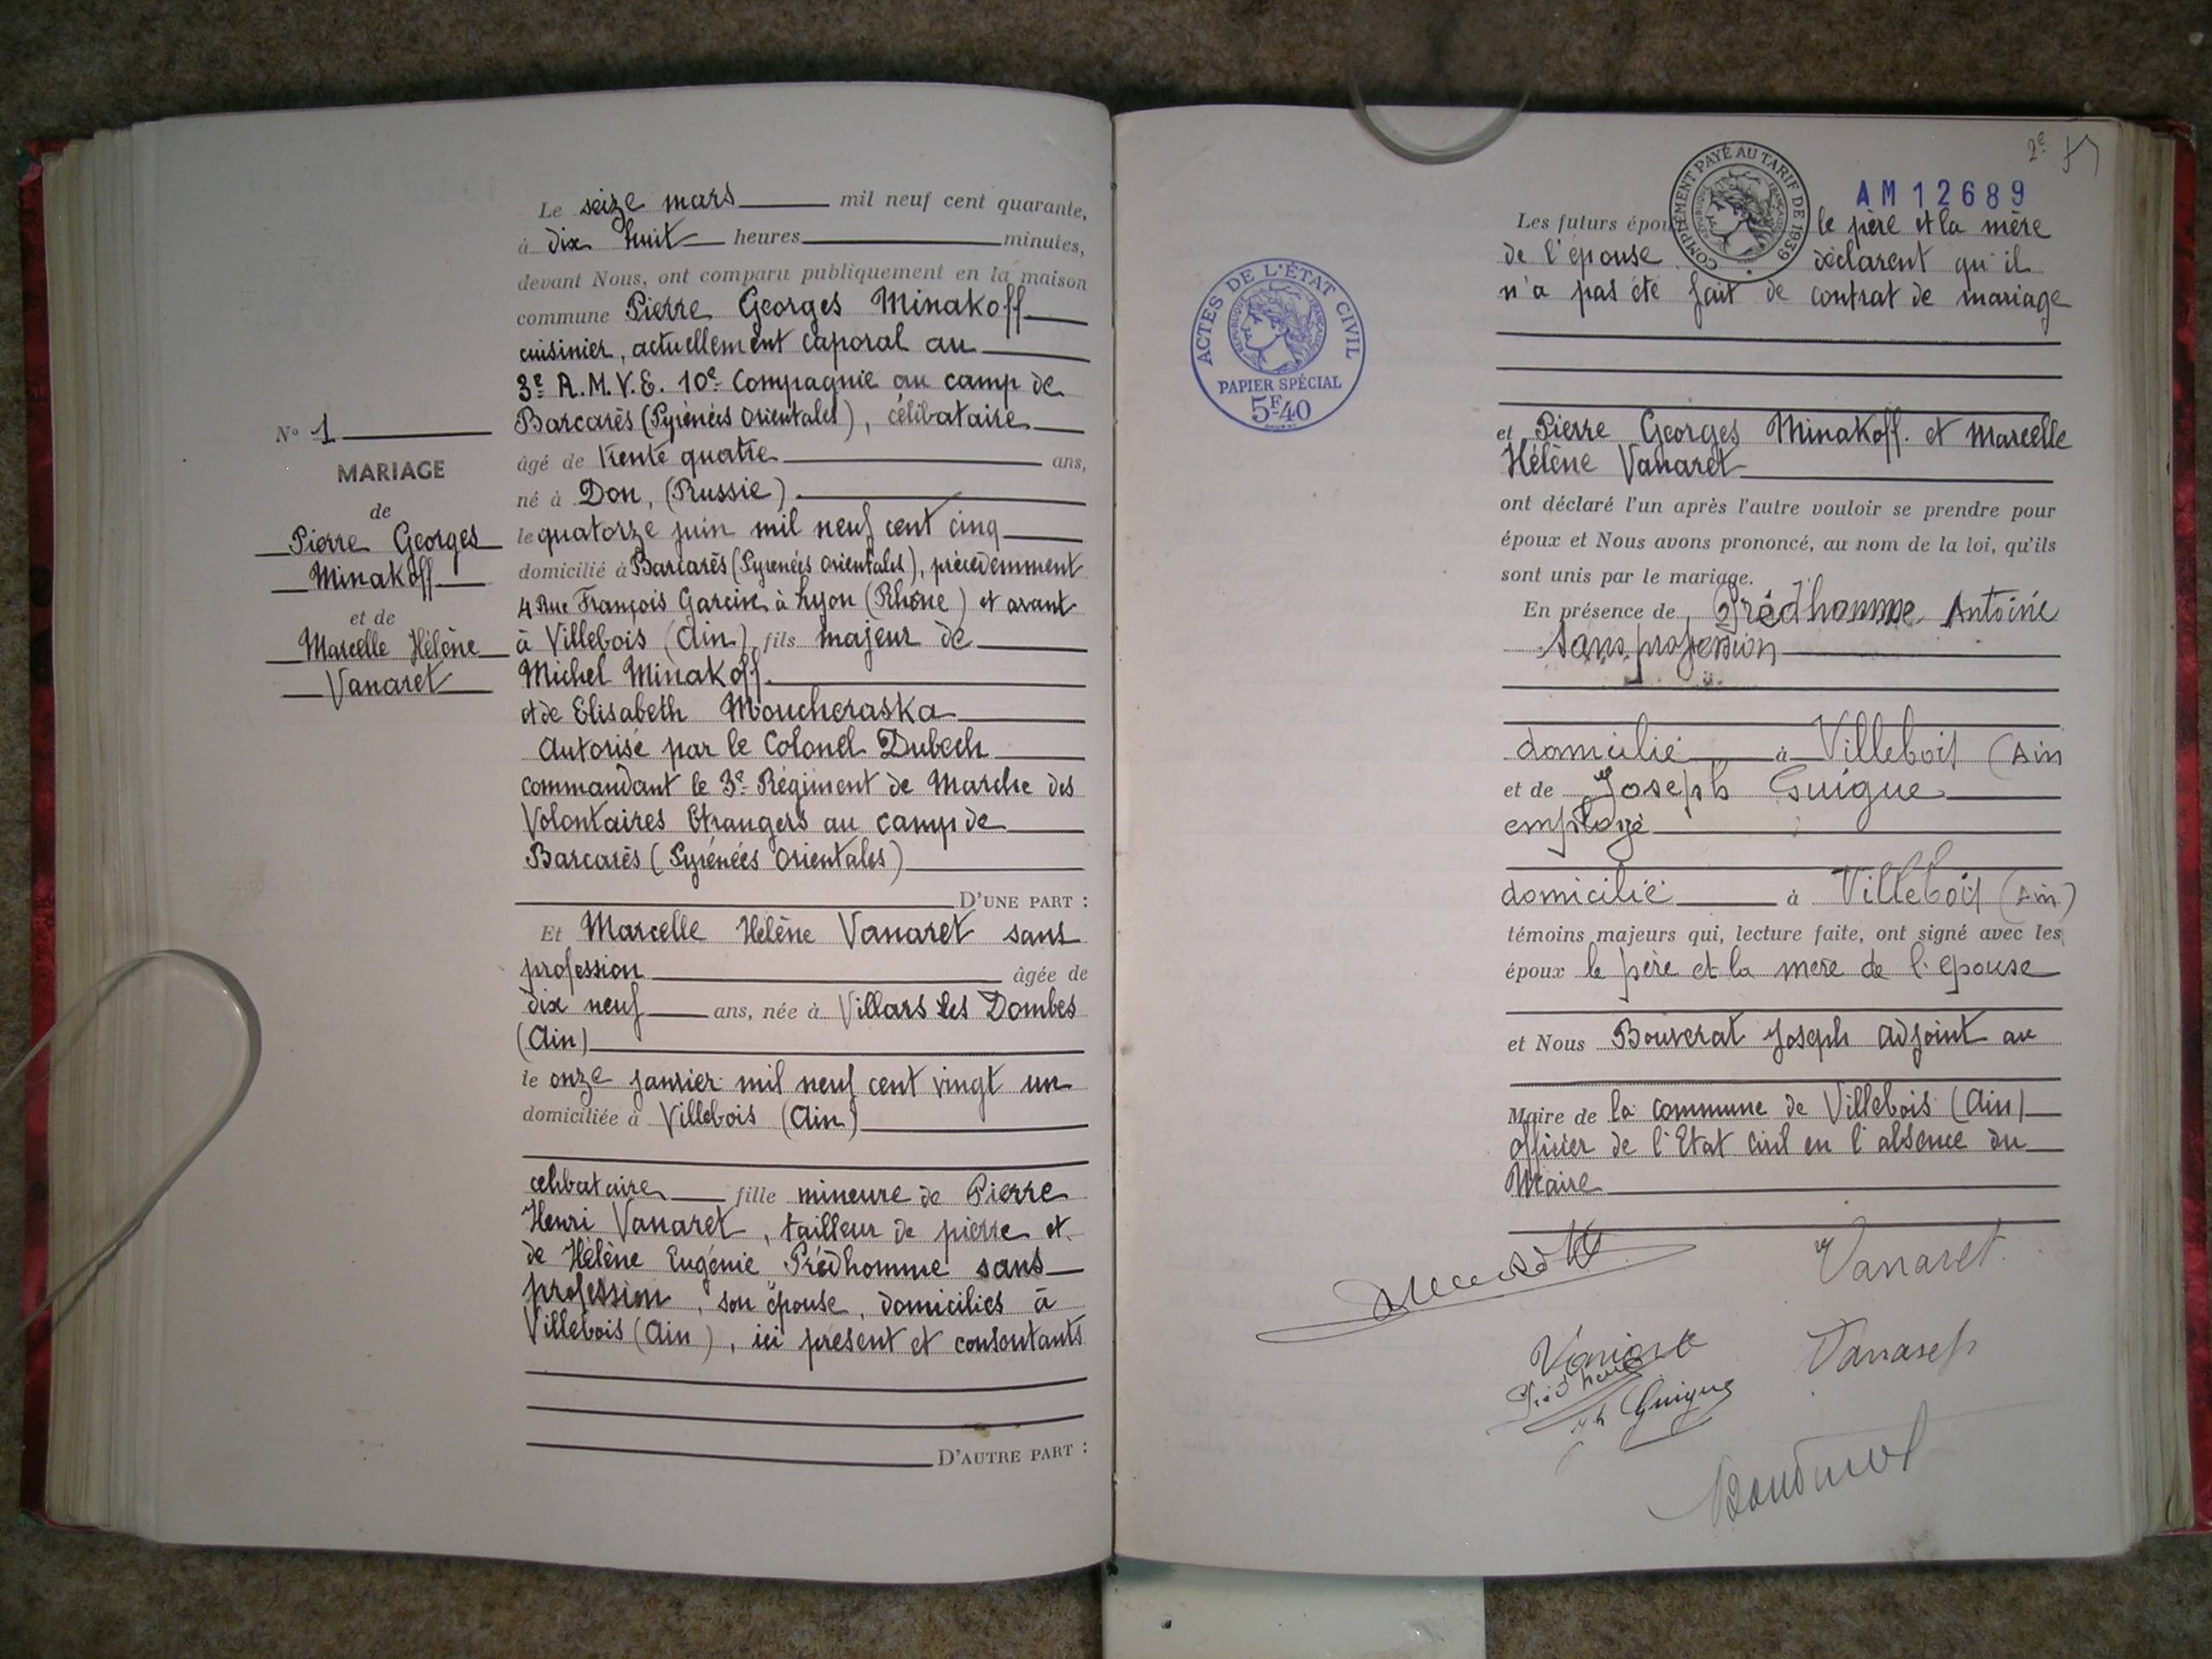 Le seize mars mil neuf cent quarante,
à dix huit heures minutes,
devant Nous, ont comparu publiquement en la maison
commune Pierre Georges Minakoff
cuisinier, actuellement caporal au
3e R.M.V.E. 10e Compagnie au camp de
Barcarès (Pyrénées Orientales), célibataire
âgé de trente quatre ans,
né à Don, (Russie)
le quatorze juin mil neuf cent cinq
domicilié à Barcarès (Pyrénées Orientales), précédemment
4 Rue François Garcin à Lyon (Rhône) et avant
à Villebois (Ain) fils majeur de
Michel Minakoff
et de Elisabeth Moucheraska
Autorisé par le Colonel Dubech
commandant le 3e Régiment de Marche des
Volontaires Etrangers au camp de
Barcarès (Pyrénées Orientales)
D'UNE PART :
Et Marcelle Hélène Vanaret sans
profession âgée de
dix neuf ans, née à Villars les Dombes
(Ain)
le onze janvier mil neuf cent vingt un
domiciliée à Villebois (Ain)
célibataire fille mineure de Pierre
Henri Vanaret, tailleur de pierre et
de Hélène Eugénie Prédhomme sans
profession, son épouse, domiciliés à
Villebois (Ain), ici présent et consentants
D'AUTRE PART :
N° 1
MARIAGE
de
Pierre Georges
Minakoff
et de
Marcelle Hélène
Vanaret
2e
AM 12689
COMPLÉMENT PAYÉ AU TARIF DE 1939
RÉPUBLIQUE FRANÇAISE
ACTES DE L'ÉTAT CIVIL
RÉPUBLIQUE FRANÇAISE
PAPIER SPÉCIAL
5F40
Les futurs épou le père et la mère
de l'épouse déclarent qu'il
n'a pas été fait de contrat de mariage
et Pierre Georges Minakoff et Marcelle
Hélène Vanaret
ont déclaré l'un après l'autre vouloir se prendre pour
époux et Nous avons prononcé, au nom de la loi, qu'ils
sont unis par le mariage.
En présence de Prédhomme Antoine
sans profession
domicilié à Villebois (Ain
et de Joseph Guigue
employé
domicilié à Villebois (Ain)
témoins majeurs qui, lecture faite, ont signé avec les
époux le père et la mère de l'épouse
et Nous Bouverat Joseph Adjoint au
Maire de la commune de Villebois (Ain)
officier de l'Etat Civil en l'absence du
Maire
Vanaret
Vanaret
Guigue